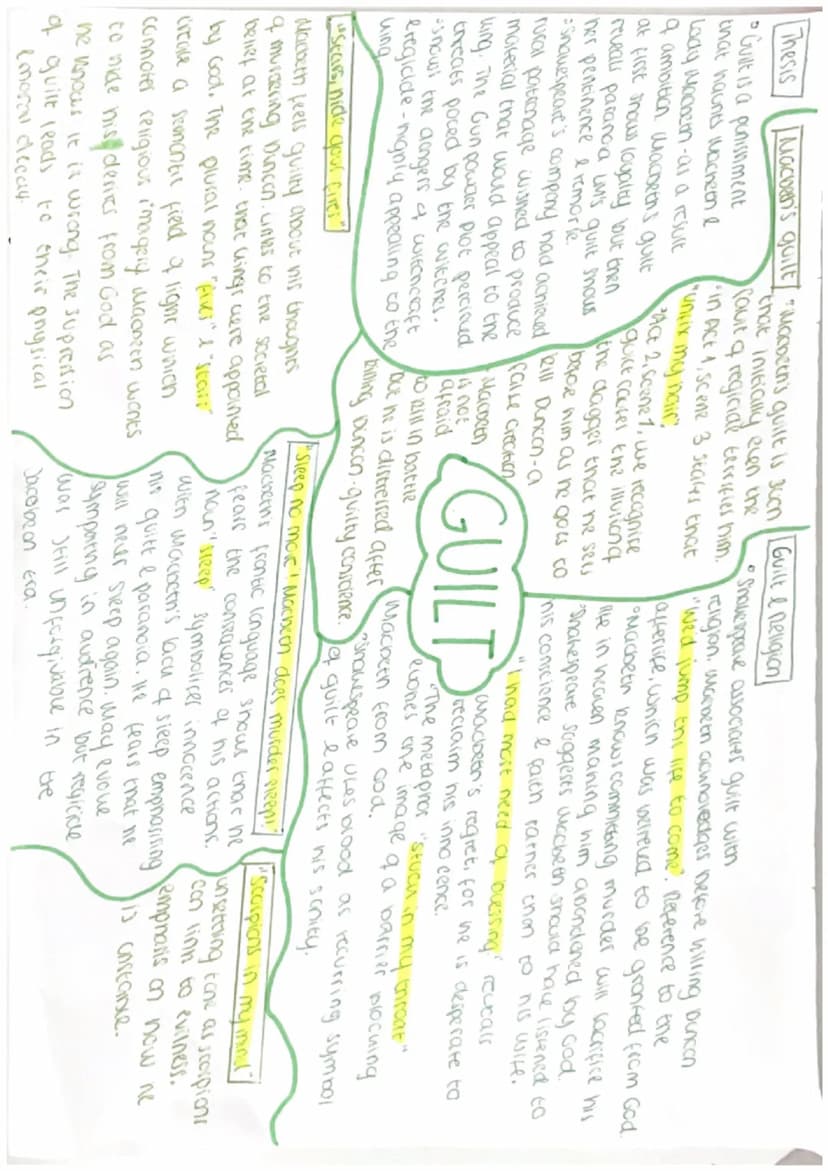 Thesis
• Guilt is a punishment
that haunts Macbeth &
Lady Macbeth as a result
of ambition. Macbeth's guilt
at first shows loyalty but then
reveals paranoia. LM's guilt shows
her pertinence & remorse
• Shakespeare's company had achieved
royal patronage, wished to produce
material that would appeal to the
king. The Gunpowder Plot perceived
threats posed by the witches.
• Shows the dangers of witchcraft
& regicide - highly appealing to the
king
Macbeth's guilt
• Macbeth's guilt is such
that initially even the
of regicide terrifies him.
• In Act 1 scene 3 states that
"unfix my hair"
• Act 2 scene 1, we recognise
guilt causes the illusion of
the dagger that he sees
before him as he goes to
kill Duncan - a
false creation
• Macbeth
is not
afraid
to kill in battle
but he is distressed after
killing Duncan - guilty conscience.
GUILT
Guilt & Religion
• Shakespeare associates guilt with
religion. Macbeth acknowledges before killing Duncan
"we'd jump this life to come". Reference to the
afterlife, which was believed to be granted from God.
• Macbeth knows committing murder will sacrifice his
life in heaven making him abandoned by God.
• Shakespeare suggests Macbeth should have listened to
his conscience & faith rather than to his wife.
"I had most need of blessing" reveals
Macbeth's regret, for he is desperate to
reclaim his innocence.
• The metaphor "stuck in my throat"
evokes the image of a barrier blocking
Macbeth from God.
• Shakespeare uses blood as recurring symbol
of guilt & affects his sanity.
"Stars, hide your fires"
Macbeth feels guilty about his thoughts
of murdering Duncan. Links to the societal
belief at the time that kings were appointed
by God. The plural nouns "fires" & "stars"
create a semantic field of light which
connotes religious imagery. Macbeth wants
to hide his desires from God as
he knows it is wrong. The supression
of guilt leads to their physical
& moral decay.
"Sleep no more! Macbeth does murder sleep!"
Macbeth's frantic language shows that he
fears the consequences of his actions.
Noun "sleep" symbolises innocence
with Macbeth's lack of sleep emphasising
his guilt & paranoia. He fears that he
will never sleep again. May evoke
sympathy in audience but regicide
was still unforgivable in the
Jacobean era.
"Scorpions in my mind"
unsettling tone as scorpions
can link to evilness.
emphasis on how he
is unstable.